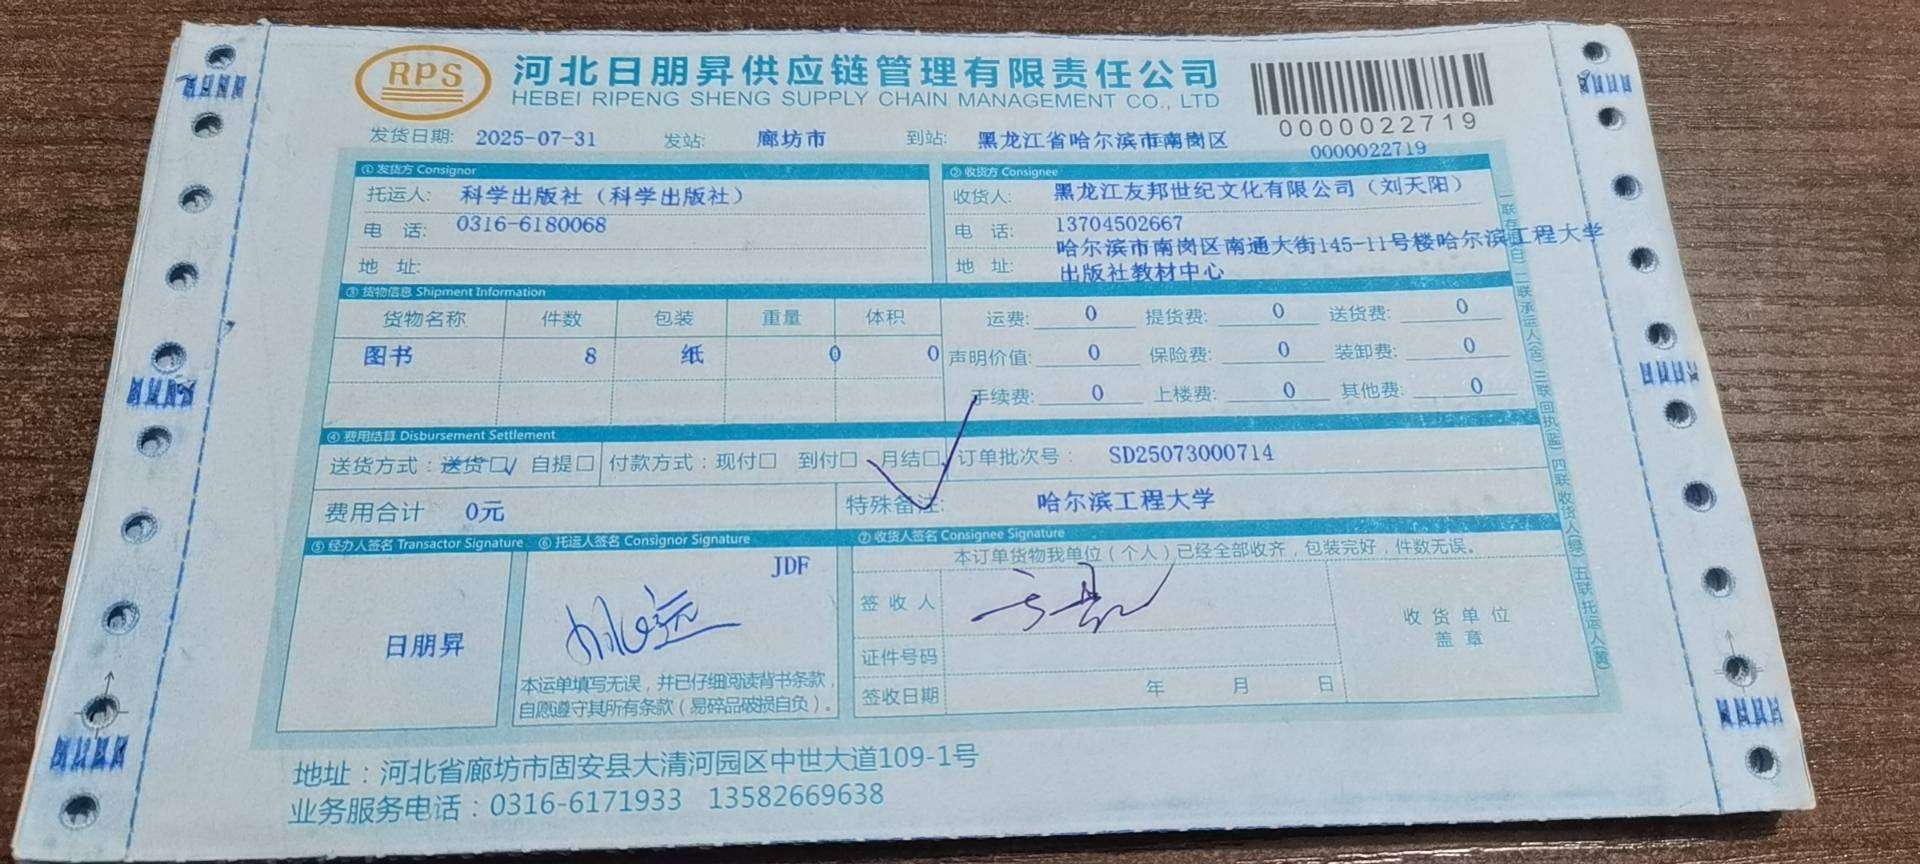 RPS 河北日朋昇供应链管理有限责任公司
HEBEI RIPENG SHENG SUPPLY CHAIN MANAGEMENT CO., LTD
0000022719
发货日期: 2025-07-31 发站: 廊坊市 到站: 黑龙江省哈尔滨市南岗区 0000022719
① 发货方 Consignor ② 收货方 Consignee
托运人: 科学出版社（科学出版社） 收货人: 黑龙江友邦世纪文化有限公司（刘天阳）
电 话: 0316-6180068 电 话: 13704502667
地 址: 地 址: 哈尔滨市南岗区南通大街145-11号楼哈尔滨工程大学
出版社教材中心
③ 货物信息 Shipment Information
货物名称 件数 包装 重量 体积 运费: 0 提货费: 0 送货费: 0
图书 8 纸 0 0 声明价值: 0 保险费: 0 装卸费: 0
手续费: 0 上楼费: 0 其他费: 0
④ 费用结算 Disbursement Settlement
送货方式：送货□√ 自提□ 付款方式：现付□ 到付□ 月结□ 订单批次号： SD25073000714
费用合计 0元 特殊备注: 哈尔滨工程大学
⑤ 经办人签名 Transactor Signature ⑥ 托运人签名 Consignor Signature ⑦ 收货人签名 Consignee Signature
本订单货物我单位（个人）已经全部收齐，包装完好，件数无误。
JDF
签 收 人
收 货 单 位
盖 章
日朋昇
证件号码
本运单填写无误，并已仔细阅读背书条款，
自愿遵守其所有条款（易碎品破损自负）。
签收日期 年 月 日
地址：河北省廊坊市固安县大清河园区中世大道109-1号
业务服务电话：0316-6171933 13582669638